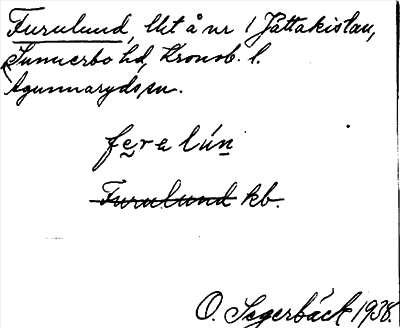 Furulund, lht å nr 1 Jättakistan,
Sunnerbo hd, Kronob. l.
Agunnaryds sn.
ferelún
Furulund kb.
O. Segerbäck 1938.